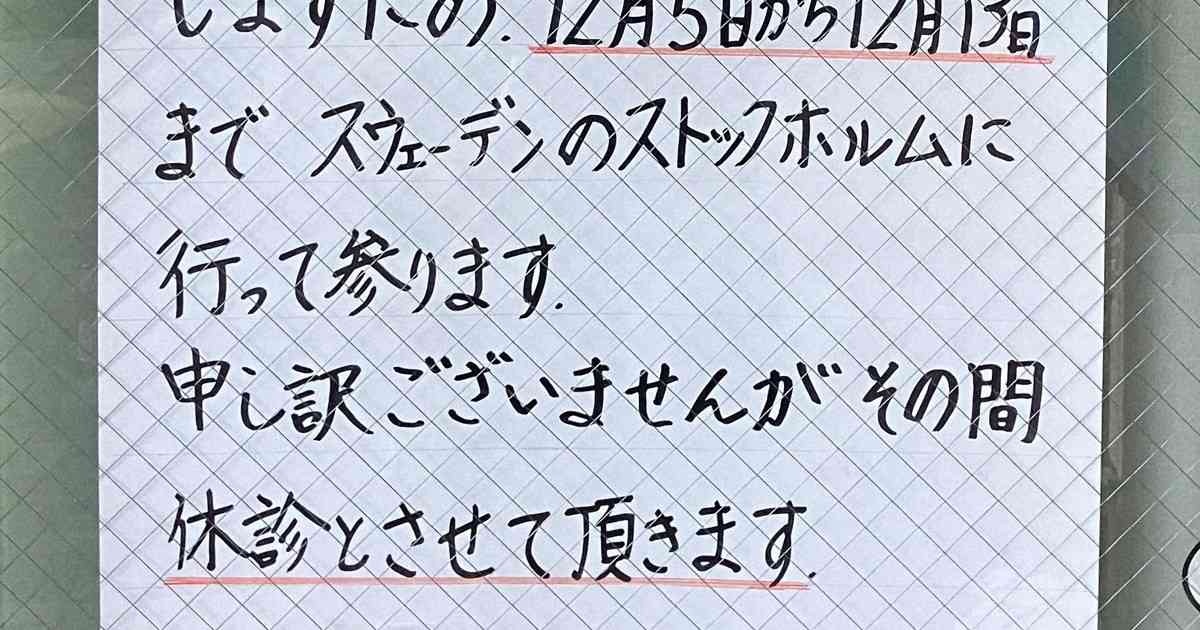 しますため、12月5日から12月13日
まで スウェーデンのストックホルムに
行って参ります.
申し訳ございませんが その間
休診とさせて頂きます.